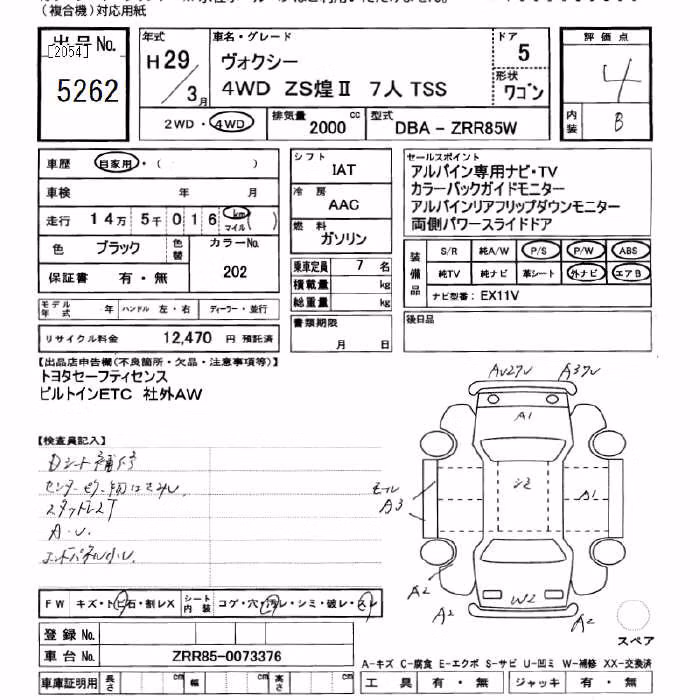 （複合機）対応用紙
出品No.
[2054]
5262
年式
H 29
3月
車名・グレード
ヴォクシー
4WD ZS煌Ⅱ 7人 TSS
ドア
5
形状
ワゴン
評価点
4
内装
B
2WD・4WD
排気量 2000 cc
型式 DBA－ZRR85W
車歴 自家用・（ ）
車検 年 月
走行 14万 5千 016 km マイル ( )
色 ブラック 色替 カラーNo.
202
保証書 有・無
シフト
IAT
冷房
AAC
燃料
ガソリン
乗車定員 7 名
積載量 kg
総重量 kg
セールスポイント
アルパイン専用ナビ・TV
カラーバックガイドモニター
アルパインリアフリップダウンモニター
両側パワースライドドア
装備品
S/R 純A/W P/S P/W ABS
純TV 純ナビ 革シート 外ナビ エアB
ナビ型番： EX11V
モデル年式 年 ハンドル 左・右 ディーラー・並行
リサイクル料金 12,470 円 預託済
書類期限
月 日
後日品
【出品店申告欄(不良箇所・欠品・注意事項等)】
トヨタセーフティセンス
ビルトインETC 社外AW
【検査員記入】
Dシート補修
スタッドレスT
A・U.
エンドパネル小U
A1
A1
モール
A3
A2
A2
W2
A2
スペア
FW キズ・トビ石・割レX シート内装 コゲ・穴・汚レ・シミ・破レ・スレ
登録No.
車台No. ZRR85-0073376
車庫証明用 長さ cm 幅 cm 高さ cm
A-キズ C-腐食 E-エクボ S-サビ U-凹ミ W-補修 XX-交換済
工具 有・無 ジャッキ 有・無